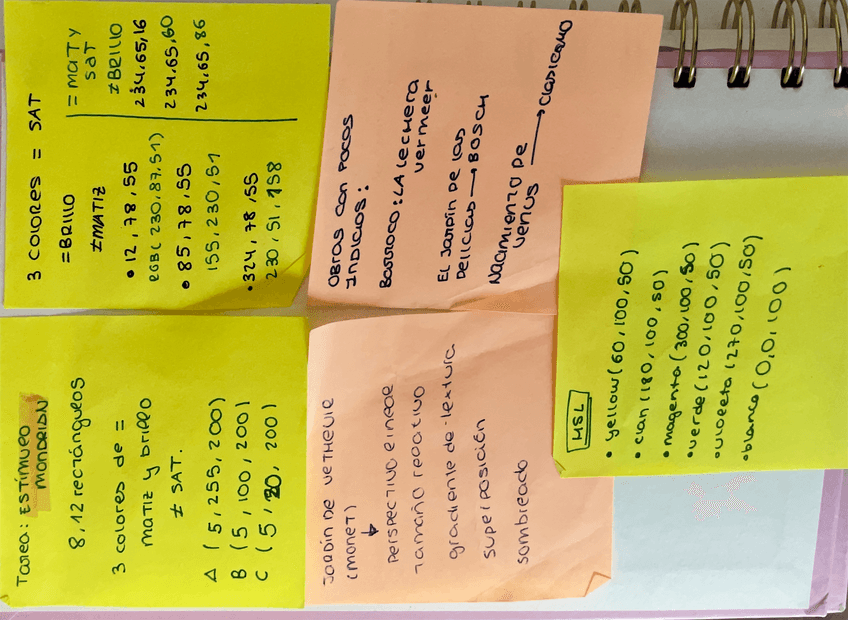 Tarea: ESTÍMULO
MONDRIAN
8,12 rectángulos
3 colores de =
matiz y brillo
≠ SAT.
A (5, 255, 200)
B (5, 100, 200)
C (5, 20, 200)
3 COLORES = SAT
=BRILLO
≠MATIZ
• 12, 78, 55
RGB (230, 87, 51)
• 85, 78, 55
155, 230, 51
• 324, 78, 55
230, 51, 158
= MAT Y
SAT
≠BRILLO
234,65,16
234,65,60
234,65,86
JARDÍN DE VETHEUIL
(MONET)
↓
PERSPECTIVA lineal
Tamaño relativo
gradiente de textura
superposición
sombreado
OBRAS CON POCOS
INDICIOS:
Barroco: LA Lechera
vermeer
EL JARDÍN DE LAS
DELICIAS → BOSCH
NACIMIENTO DE
VENUS → CLASICISMO
HSL
• yellow (60, 100, 50)
• cian (180, 100, 50)
• magenta (300, 100, 50)
• verde (120, 100, 50)
• violeta (270, 100, 50)
• blanco (0, 0, 100)